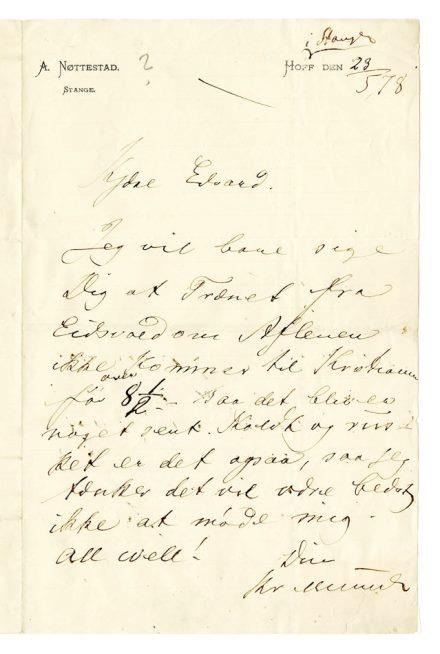 i Stange
A. NØTTESTAD. ?
STANGE.
HOFF DEN 23/5 78
Kjære Edvard.
Jeg vil bare sige
Dig at Trænet fra
Eidsvold om Aftenen
ikke kommer til Kristiania
før over 8 1/2 - saa det bliver
noget sent. Koldt og rus-
ket er det ogsaa, saa jeg
tænker det vil være bedst
ikke at møde mig.
All well!
Din
Chr Munch